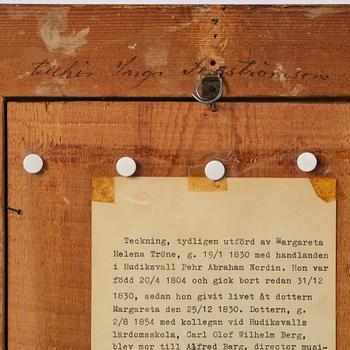 tillhör Inga
Teckning, tydligen utförd av Margareta
Helena Tröne, g. 19/1 1830 med handlanden
i Hudiksvall Pehr Abraham Nordin. Hon var
född 20/4 1804 och gick bort redan 31/12
1830, sedan hon givit livet åt dottern
Margareta den 25/12 1830. Dottern, g.
2/8 1854 med kollegan vid Hudiksvalls
lärdomsskola, Carl Olof Wilhelm Berg,
blev mor till Alfred Berg, director musi-